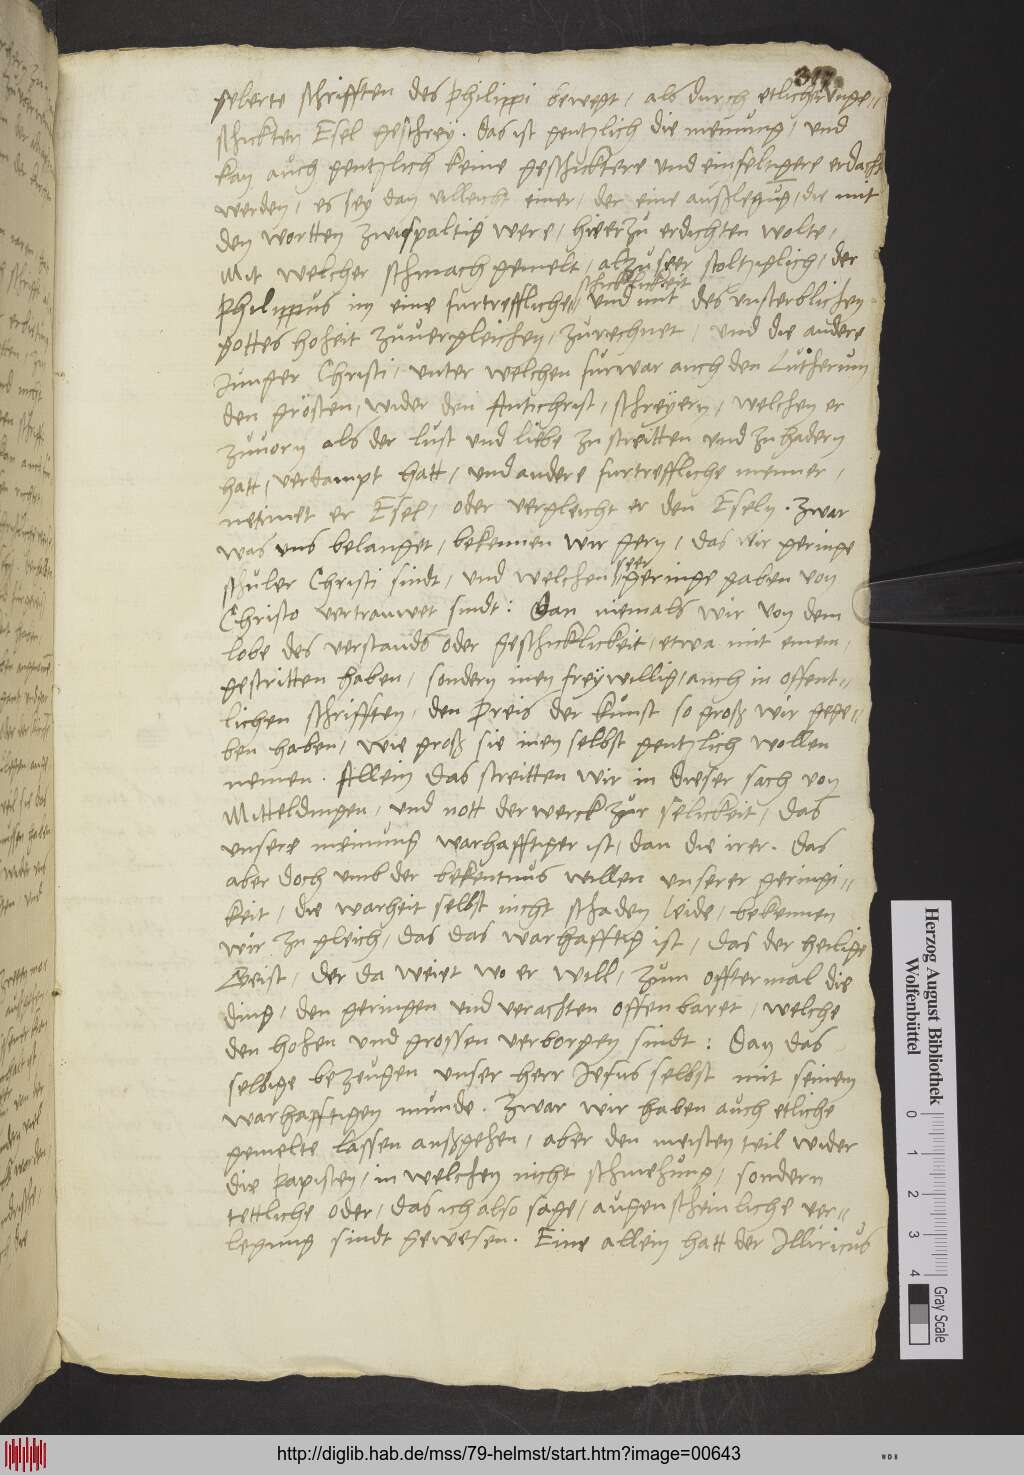 317
gelerte schrifften des Philippi bewegt, als durch etlicher unge=
schickten Esel geschrey. das ist gentzlich die meinung, und
kan auch gentzlich keine geschicktere und einfeltigere erdacht
werden, es sey dan villeicht einer, der eine außlegung, die mit
den wortten zwispaltig were, hierzu erdichten wolte,
Mit welcher schmach gemelt, alzu seer stoltziglich, der
schicklickeit
Philippus in eine furtreffliche, und mit des unsterblichen
gottes hoheit zuuergleichen, zurechnet, und die andere
Junger Christi, unter welchen furwar auch den Lutherum
den grösten, wider den Antichrist, schreyern, welchen er
zuuorn als der lust und liebe zu streitten und zu hadern
hatt, verdampt hatt, und andere furtreffliche menner,
nennet er Esel, oder vergleicht er den Eseln. Zwar
was uns belanget, bekennen wir gern, das wir geringe
schuler Christi sindt, und welchen seer geringe gaben von
Christo vertrauwet sindt: Dan niemals wir von dem
lobe des verstands oder geschicklickeit, etwa mit einem,
gestritten haben, sondern inen freywillig, auch in offent=
lichen schrifften, den Preis der kunst so groß wir gege=
ben haben, wie groß sie inen selbst gentzlich wollen
nemen. Allein das streitten wir in dieser sach von
Mitteldingen, und nott der werck zur selickeit, das
unsere meinung warhafftiger ist, dan die irer. Das
aber doch umb der bekentnus willen unserer geringi=
keit, die warheit selbst nicht schaden leide, bekennen
wir zu gleich, das das warhafftig ist, das der heilige
Geist, der da weiet wo er will, zum offtermal die
ding, den geringen und verachten offenbaret, welche
den hohen und grossen verborgen sindt: Dan das
selbige bezeugen unser herr Jesus selbst mit seinem
warhafftigen munde. Zwar wir haben auch etliche
gemelte lassen außgehen, aber den meisten teil wider
die Papisten, in welchen nicht schmehung, sondern
tettliche oder, das ich also sage, augenscheinliche ver=
legung sindt gewesen. Eine allein hatt der Illiricus
Herzog August Bibliothek
Wolfenbüttel
0 1 2 3 4
Gray Scale
http://diglib.hab.de/mss/79-helmst/start.htm?image=00643
WDB